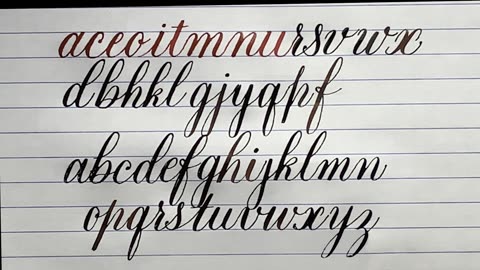 aceoitmnursvwx
dbhklgjyqpf
abcdefghijklmn
opqrstuvwxyz